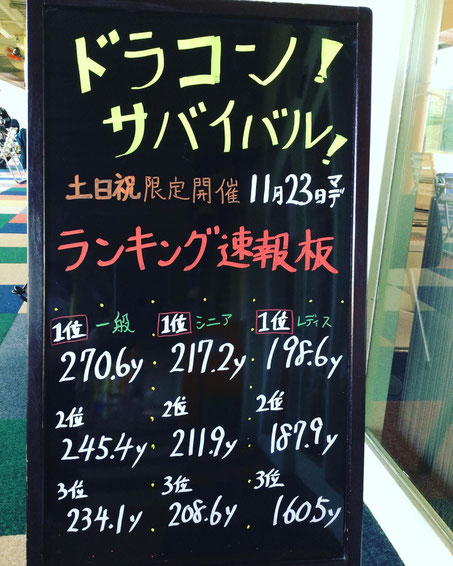 ドラコーン!
サバイバル!
土日祝限定開催 11月23日マデ
ランキング速報板
1位 一般 1位 シニア 1位 レディス
270.6y 217.2y 198.6y
2位 2位 2位
245.4y 211.9y 187.9y
3位 3位 3位
234.1y 208.6y 160.5y